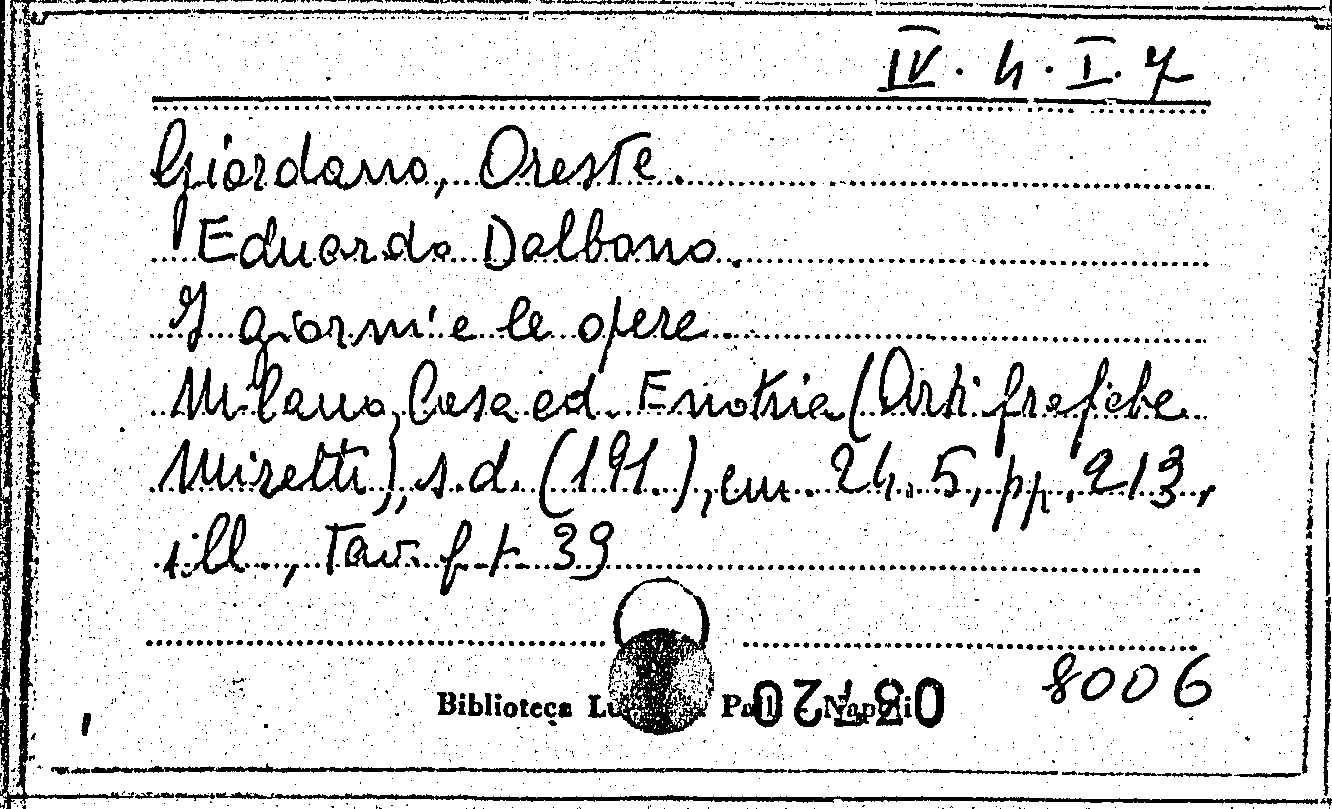 IV. 4. I. 7
Giordano, Oreste.
Eduardo Dalbono.
I giorni e le opere
Milano, Casa ed. Enotria (Arti grafiche
Miretti), s.d. (191.), cm. 24,5, pp. 213,
ill., Tav. f. t. 39
8006
Biblioteca Napoli